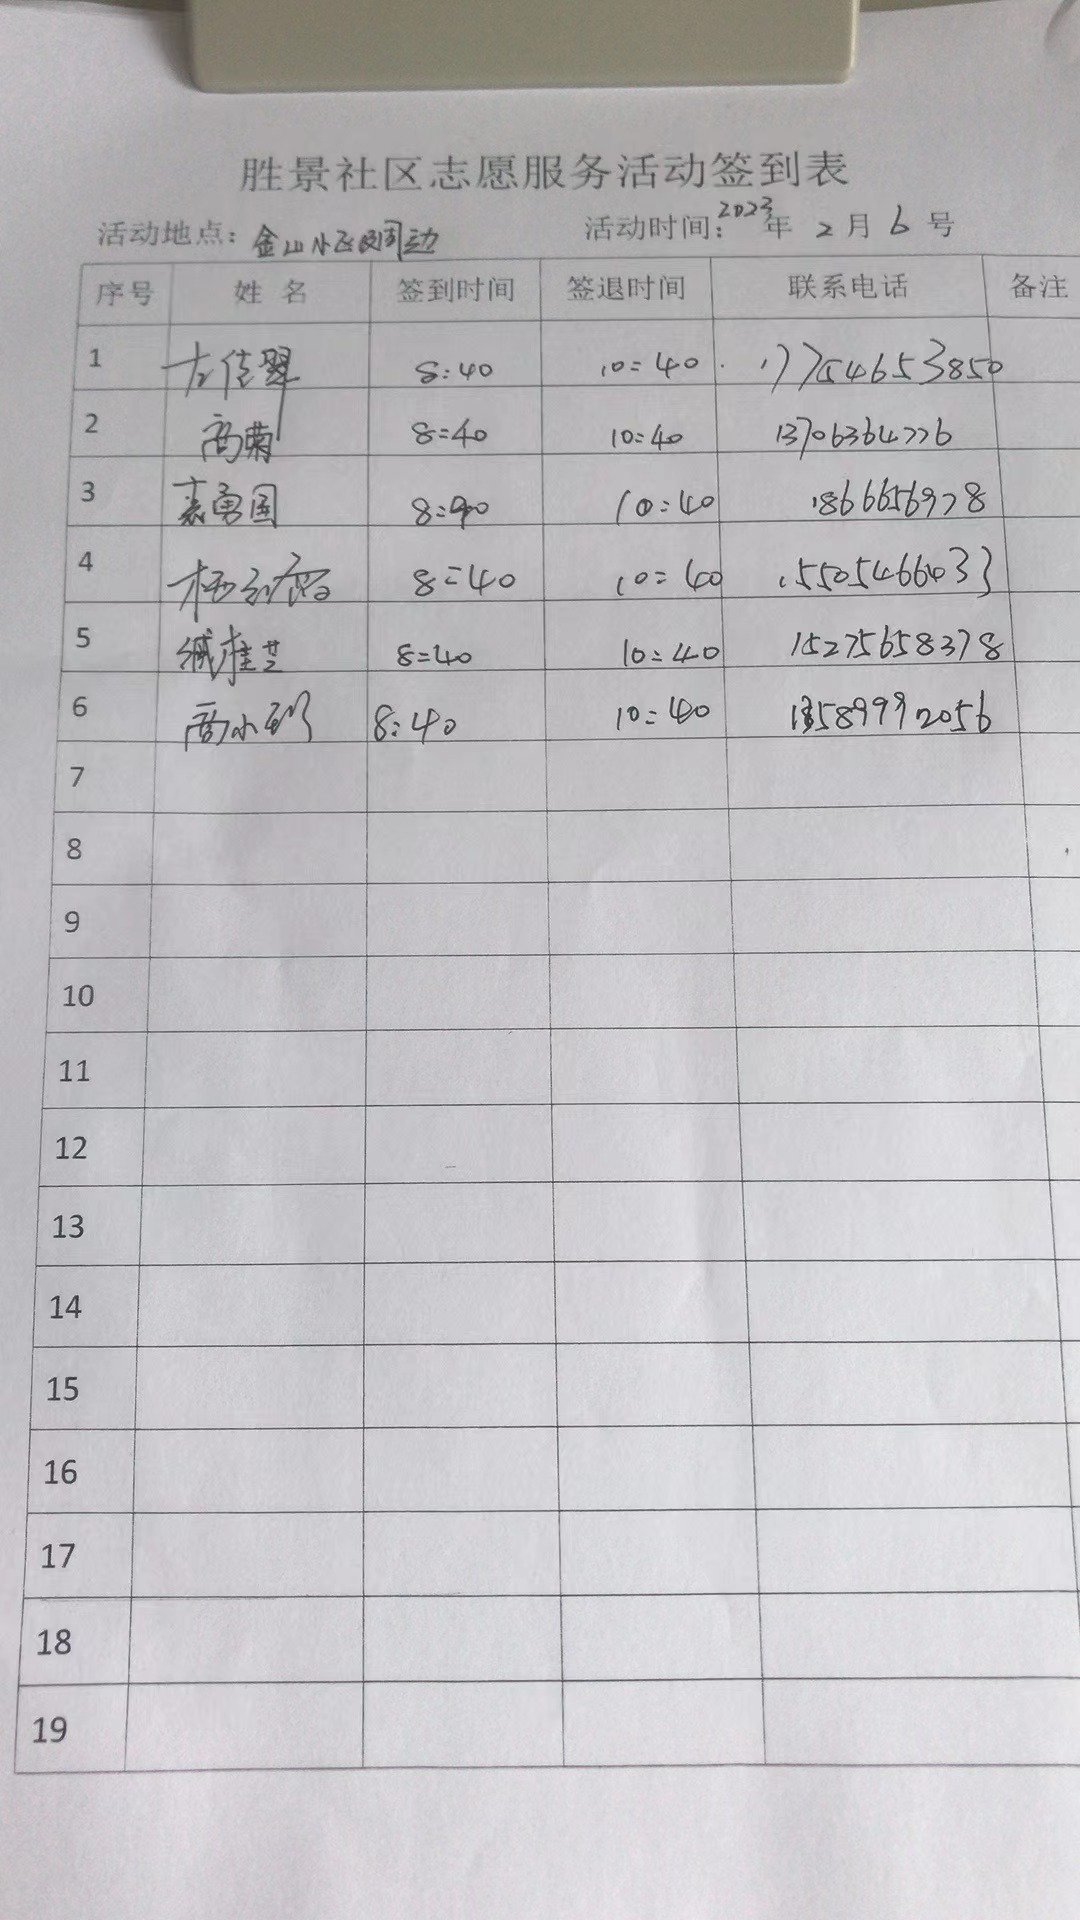 胜景社区志愿服务活动签到表
活动地点：金山小区周边 活动时间：2023年 2月 6号
序号 姓名 签到时间 签退时间 联系电话 备注
1 左佳翠 8:40 10:40 17754653850
2 商菊 8:40 10:40 13706364776
3 袁勇国 8:40 10:40 1866656978
4 8:40 10:40 15505466033
5 臧桂芝 8:40 10:40 15275658378
6 商小 8:40 10:40 13589992056
7
8
9
10
11
12
13
14
15
16
17
18
19